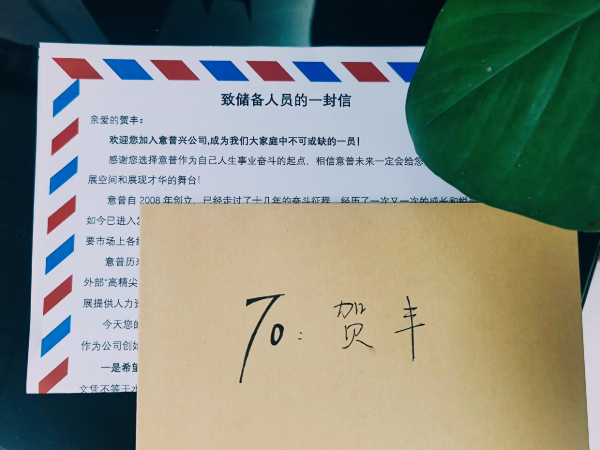 致储备人员的一封信
亲爱的贺丰：
欢迎您加入意普兴公司,成为我们大家庭中不可或缺的一员！
感谢您选择意普作为自己人生事业奋斗的起点，相信意普未来一定会给您
展空间和展现才华的舞台！
意普自 2008 年创立，已经走过了十几年的奋斗征程，经历了一次又一次的成长和
如今已进入
要市场上各
意普历
外部“高精尖
展提供人力资
今天您的
作为公司创始
一是希望
文凭不等于
To：贺丰